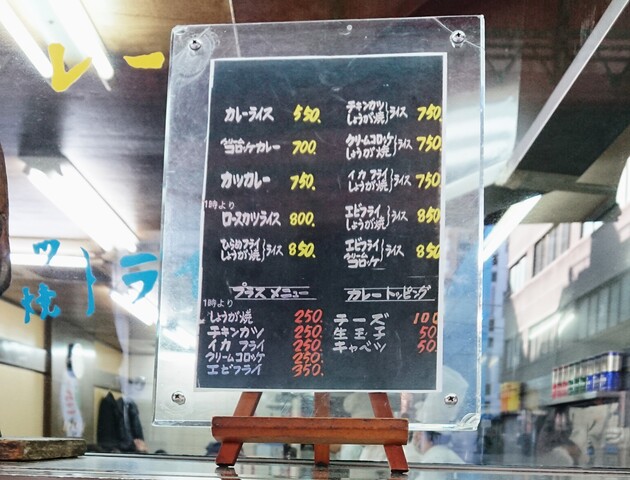 カレー
カレーライス 550.
クリームコロッケカレー 700.
カツカレー 750.
1時より
ロースカツライス 800.
ひらめフライ しょうが焼 ライス 850.
チキンカツ しょうが焼 ライス 750
クリームコロッケ しょうが焼 ライス 750
イカフライ しょうが焼 ライス 750
エビフライ しょうが焼 ライス 850
エビフライ クリームコロッケ ライス 850
プラスメニュー
1時より
しょうが焼 250.
チキンカツ 250.
イカフライ 250.
クリームコロッケ 250.
エビフライ 350.
カレートッピング
チーズ 100
生玉子 50
キャベツ 50.